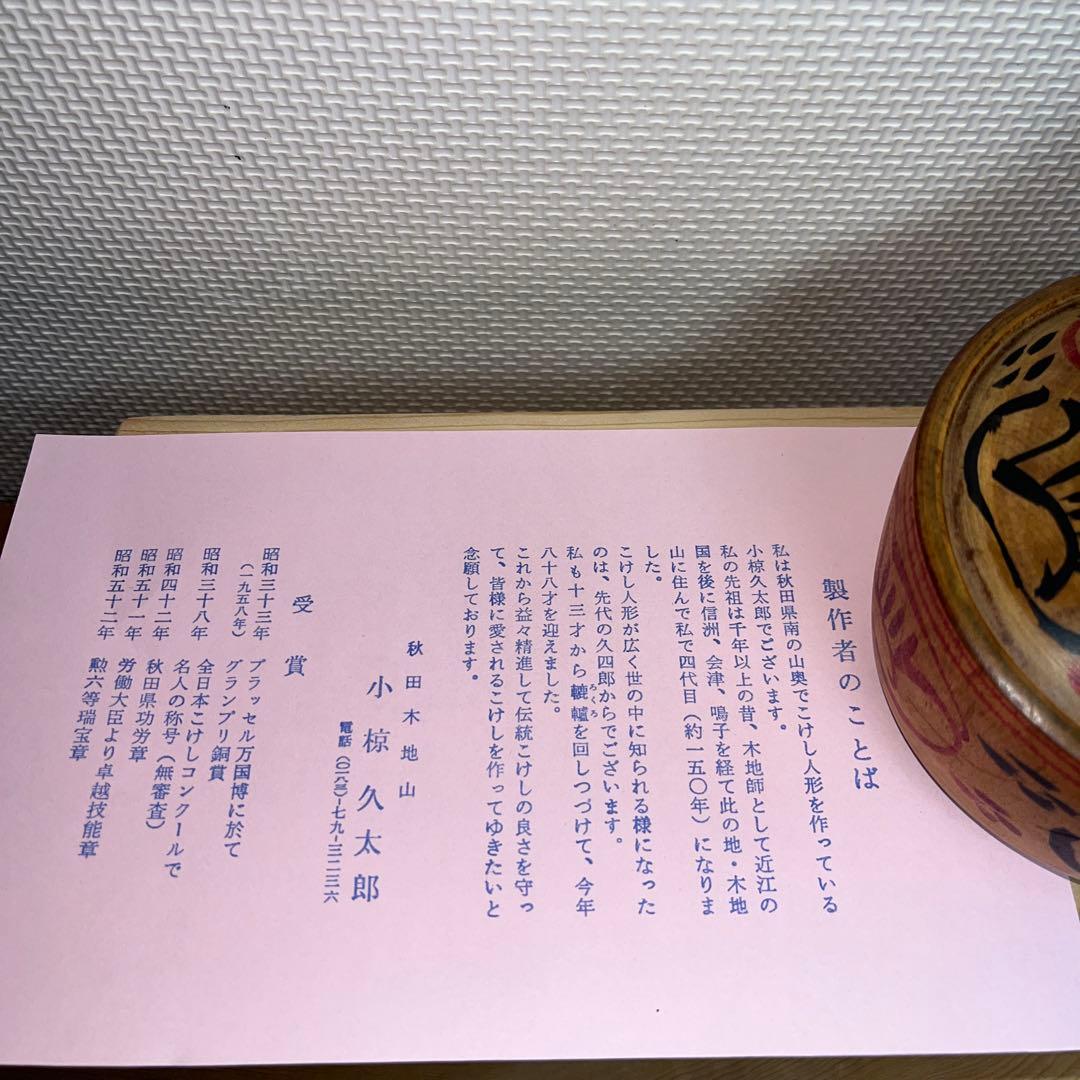 製作者のことば
私は秋田県南の山奥でこけし人形を作っている
小椋久太郎でございます。
私の先祖は千年以上の昔、木地師として近江の
国を後に信洲、会津、鳴子を経て此の地・木地
山に住んで私で四代目（約一五〇年）になりま
した。
こけし人形が広く世の中に知られる様になった
のは、先代の久四郎からでございます。
私も十三才から轆轤を回しつづけて、今年
ろくろ
八十八才を迎えました。
これから益々精進して伝統こけしの良さを守っ
て、皆様に愛されるこけしを作ってゆきたいと
念願しております。
秋田木地山
小椋久太郎
電話（〇一八三）ー七九ー三二三六
受賞
昭和三十三年　ブラッセル万国博に於て
（一九五八年）　グランプリ銅賞
昭和三十八年　全日本こけしコンクールで
名人の称号（無審査）
昭和四十二年　秋田県功労章
昭和五十一年　労働大臣より卓越技能章
昭和五十二年　勲六等瑞宝章